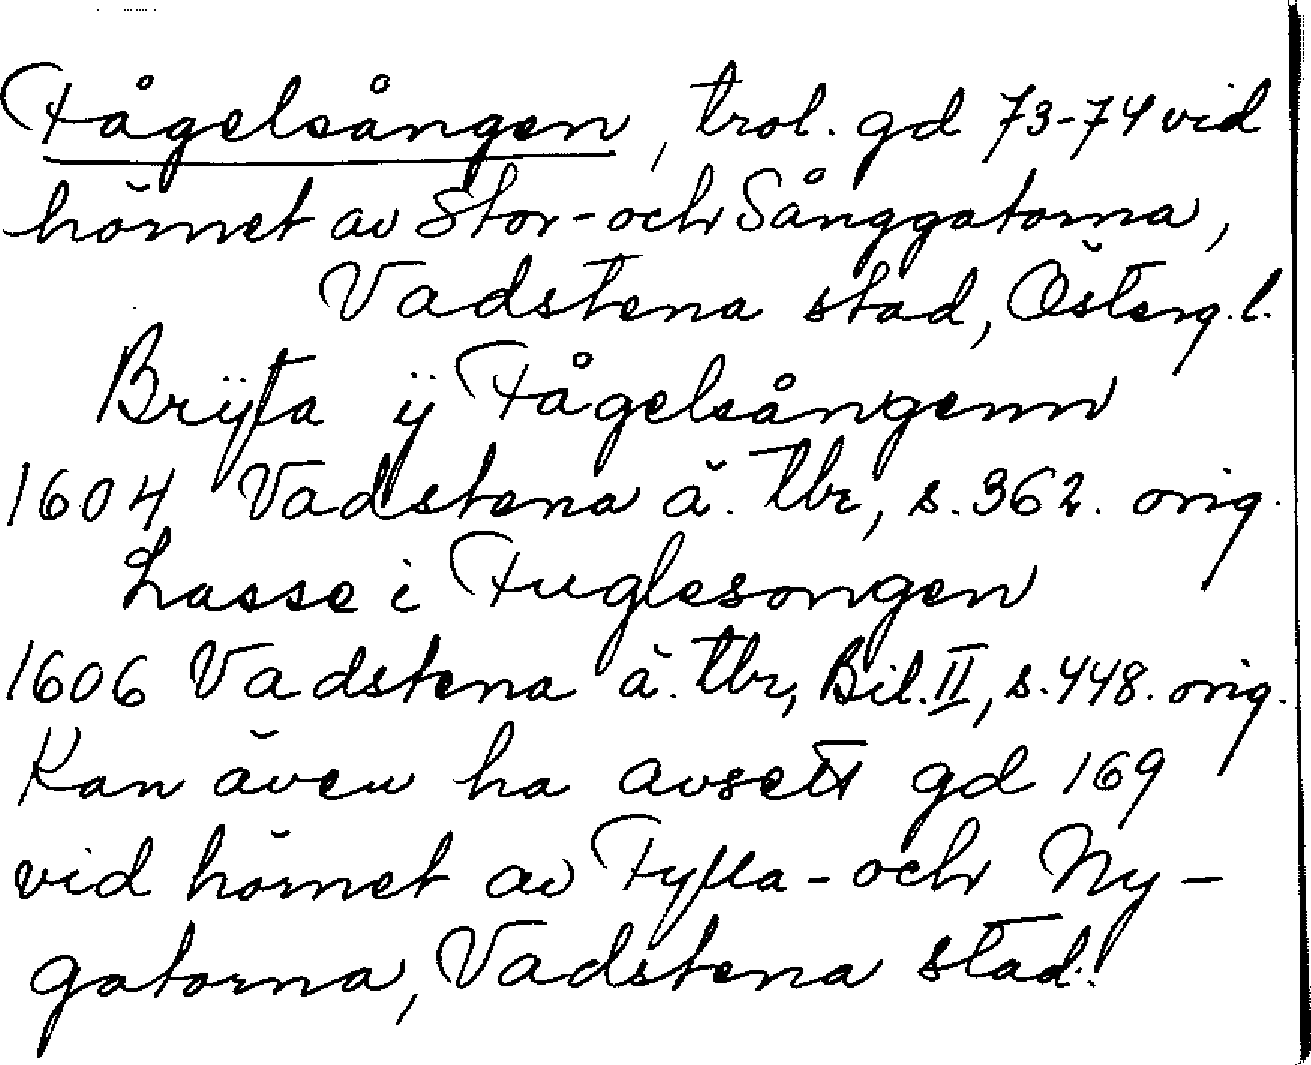 Fågelsången, trol. gd 73-74 vid
hörnet av Stor- och Sånggatorna,
Vadstena stad, Österg.l.
Brÿta ÿ Fågelsångenn
1604 Vadstena ä. tbr, s. 362. orig.
Lasse i Fuglesongen
1606 Vadstena ä. tbr, Bil. II, s. 448. orig.
Kan även ha avsett gd 169
vid hörnet av Fylla- och Ny-
gatorna, Vadstena stad.